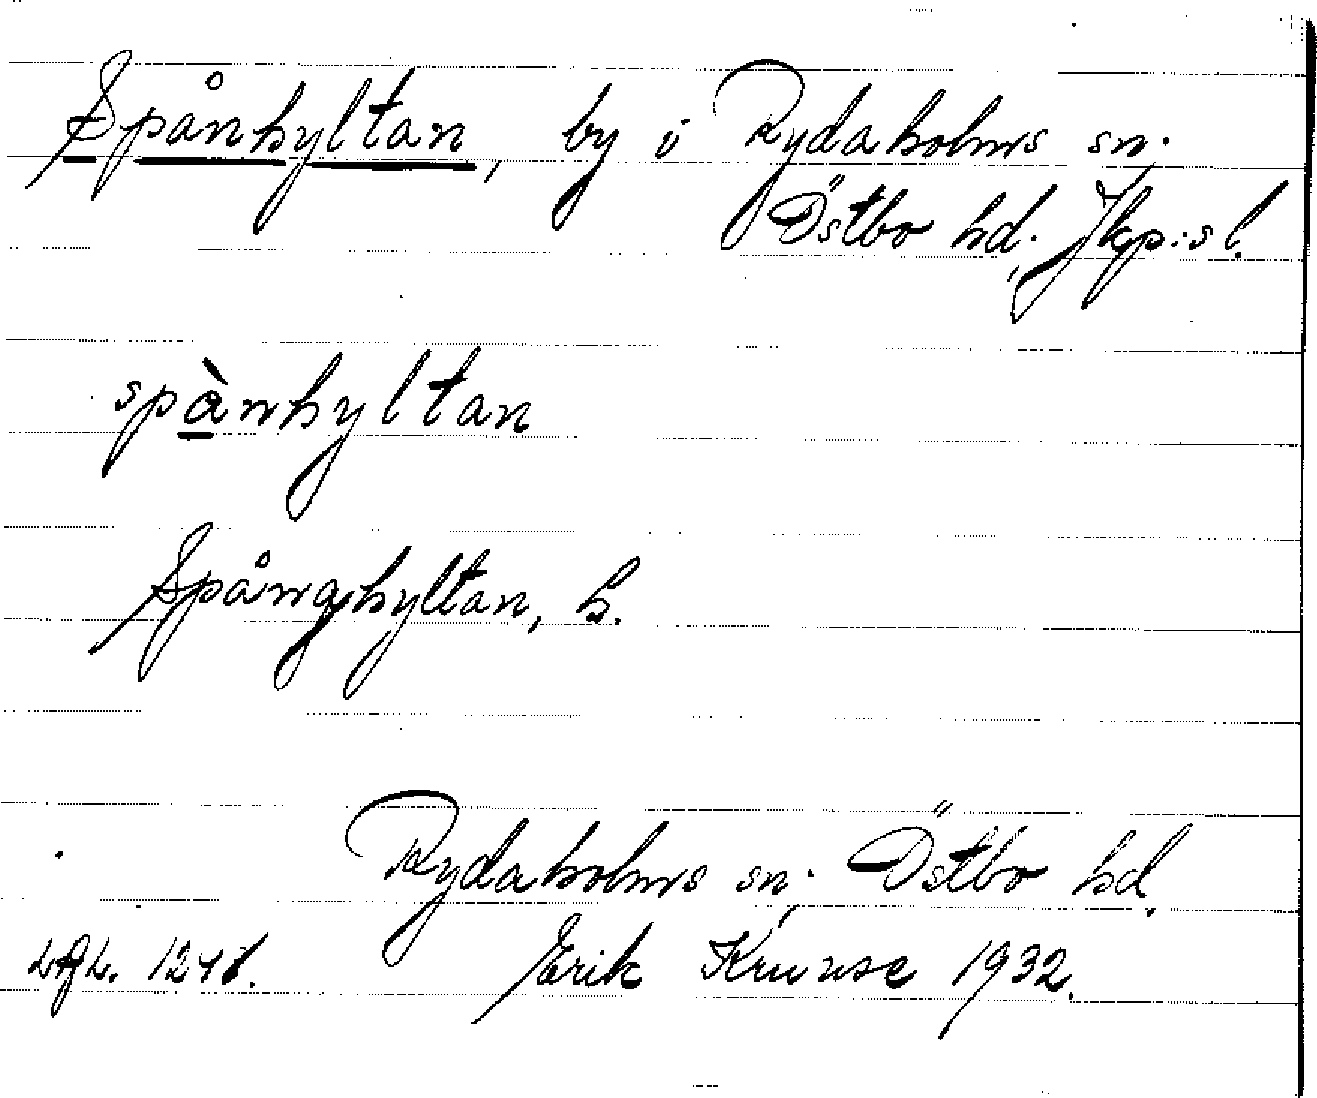 Spånhyltan, by i Rydaholms sn.
Östbo hd, Jkp:s l.
spànhyltan
Spånghyltan, h.
Rydaholms sn, Östbo hd.
Erik Kruuse 1932.